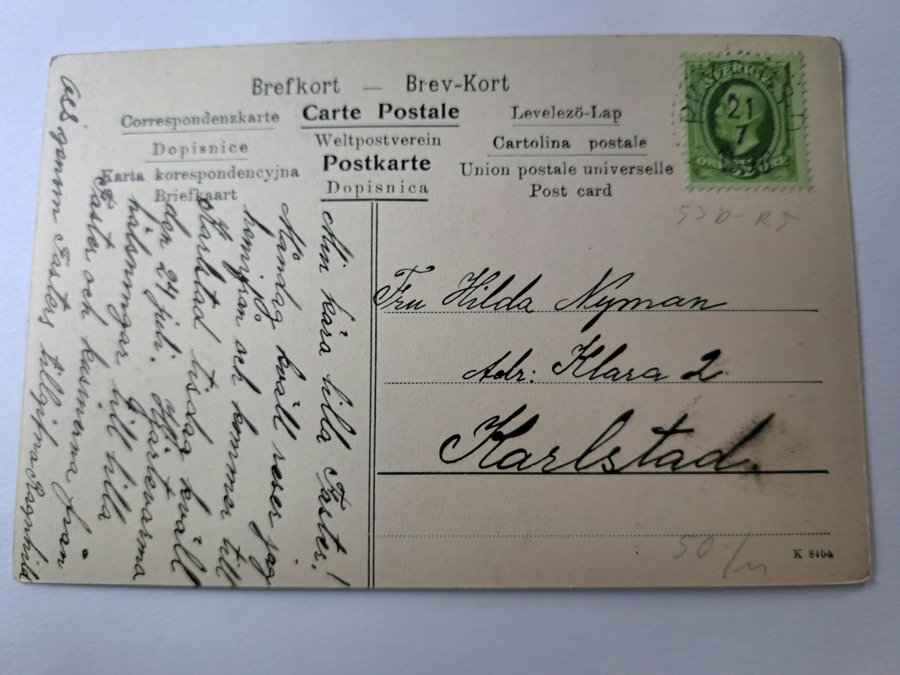 Brefkort — Brev-Kort
Correspondenzkarte Carte Postale Levelezö-Lap
Dopisnice Weltpostverein Cartolina postale
Karta korespondencyjna Postkarte Union postale universelle
Briefkaart Dopisnica Post card
SVERIGE
21
7
ÖRE
53D-R5
Min kära lilla Faster!
Måndag kväll reser jag
hemifrån och kommer till
Karlstad tisdag kväll
den 24 juli. Hjärtevarma
hälsningar till lilla
Faster och kusinerna från
Fasters tillgifna Ragnhild
Fru Hilda Nyman
Adr: Klara 2
Karlstad.
50-/
K 8464